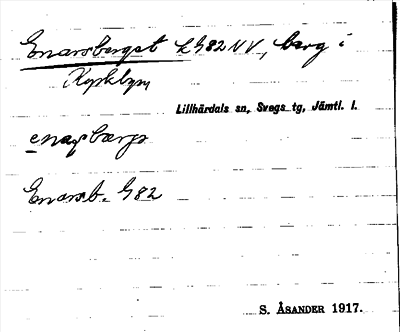 Enarsberget k G82 NV, berg i
Kyrkbyn
Lillhärdals sn, Svegs tg, Jämtl. l.
Enarsb. G82
S. ÅSANDER 1917.